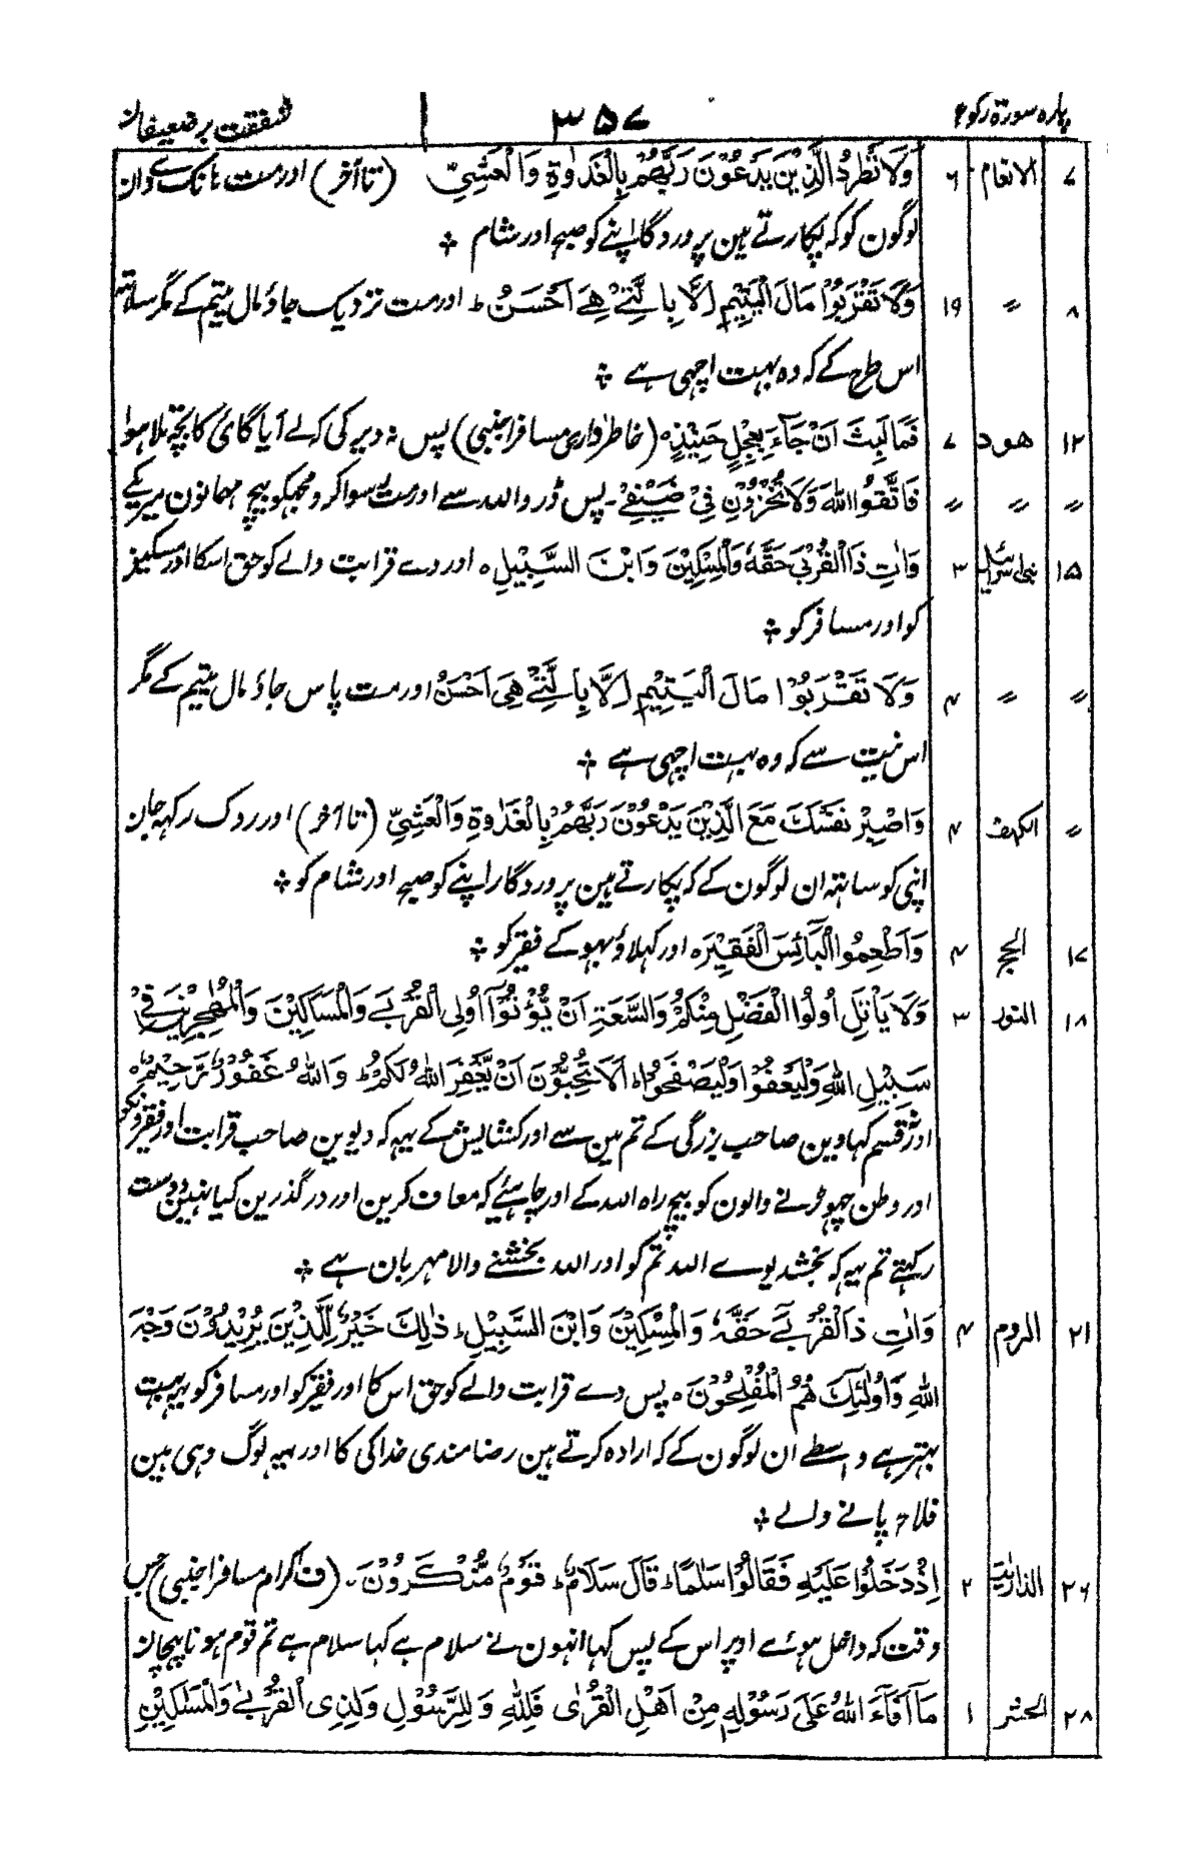 پارہ سورۃ رکوع ۳۵۷ شفقت برضعیفان
۷ الانعام ۶ وَلَا تَطْرُدِ الَّذِيْنَ يَدْعُوْنَ رَبَّهُمْ بِالْغَدٰوةِ وَالْعَشِيِّ (تا آخر) اور مت ہانک دے ان
لوگون کو کہ پکارتے ہین پروردگار اپنے کو صبح اور شام ؞
۸ ״ ۱۹ وَلَا تَقْرَبُوْا مَالَ الْيَتِيْمِ اِلَّا بِالَّتِيْ هِيَ اَحْسَنُ ط اور مت نزدیک جاؤ مال یتیم کے مگر ساتہہ
اس طرح کے کہ وہ بہت اچہی ہے ؞
۱۲ هود ۷ فَمَا لَبِثَ اَنْ جَآءَ بِعِجْلٍ حَنِيْذٍ ہ (خاطرداری مسافر اجنبی) پس نہ دیر کی کہ لے آیا گائ کا بچہ تلا ہوا
״ ״ ״ فَاتَّقُوا اللهَ وَلَا تُخْزُوْنِ فِيْ ضَيْفِيْ ۔ پس ڈرو اللہ سے اور مت رسوا کرو مجہکو بیچ مہمانون میریکے
۱۵ بنی اسرائیل ۳ وَاٰتِ ذَا الْقُرْبٰى حَقَّهٗ وَالْمِسْكِيْنَ وَابْنَ السَّبِيْلِ ہ اور دے قرابت والے کو حق اسکا اور مسکین
کو اور مسافر کو ؞
״ ״ ۴ وَلَا تَقْرَبُوْا مَالَ الْيَتِيْمِ اِلَّا بِالَّتِيْ هِيَ اَحْسَنُ اور مت پاس جاؤ مال یتیم کے مگر
اس نیت سے کہ وہ بہت اچہی ہے ؞
״ الکہف ۴ وَاصْبِرْ نَفْسَكَ مَعَ الَّذِيْنَ يَدْعُوْنَ رَبَّهُمْ بِالْغَدٰوةِ وَالْعَشِيِّ (تا آخر) اور روک رکہہ جان
اپنی کو ساتہہ ان لوگون کے کہ پکارتے ہین پروردگار اپنے کو صبح اور شام کو ؞
۱۷ الحج ۴ وَاَطْعِمُوا الْبَآئِسَ الْفَقِيْرَ ہ اور کہلاؤ بہوکے فقیر کو ؞
۱۸ النور ۳ وَلَا يَأْتَلِ اُولُوا الْفَضْلِ مِنْكُمْ وَالسَّعَةِ اَنْ يُّؤْتُوْٓا اُولِي الْقُرْبٰى وَالْمَسَاكِيْنَ وَالْمُهٰجِرِيْنَ فِيْ
سَبِيْلِ اللهِ وَلْيَعْفُوْا وَلْيَصْفَحُوْا ط اَلَا تُحِبُّوْنَ اَنْ يَّغْفِرَ اللهُ لَكُمْ ط وَاللهُ غَفُوْرٌ رَّحِيْمٌ ہ
اور قسم کہاوین صاحب بزرگی کے تم مین سے اور کشایش کے یہہ کہ دیوین صاحب قرابت اور فقیرونکو
اور وطن چہوڑنے والون کو بیچ راہ اللہ کے اور چاہئے کہ معاف کرین اور درگذرین کیا نہین دوست
رکہتے تم یہہ کہ بخشدیوے اللہ تم کو اور اللہ بخشنے والا مہربان ہے ؞
۲۱ الروم ۴ وَاٰتِ ذَا الْقُرْبٰى حَقَّهٗ وَالْمِسْكِيْنَ وَابْنَ السَّبِيْلِ ط ذٰلِكَ خَيْرٌ لِّلَّذِيْنَ يُرِيْدُوْنَ وَجْهَ
اللهِ وَاُولٰٓئِكَ هُمُ الْمُفْلِحُوْنَ ہ پس دے قرابت والے کو حق اس کا اور فقیر کو اور مسافر کو یہہ بہت
بہتر ہے واسطے ان لوگون کے کہ ارادہ کرتے ہین رضامندی خدا کی کا اور یہہ لوگ وہی ہین
فلاح پانے والے ؞
۲۶ الذاریٰت ۲ اِذْ دَخَلُوْا عَلَيْهِ فَقَالُوْا سَلٰمًا ط قَالَ سَلَامٌ ط قَوْمٌ مُّنْكَرُوْنَ ۔ (ف اکرام مسافر اجنبی) جس
وقت کہ داخل ہوئے اوپر اس کے پس کہا انہون نے سلام ہے کہا سلام ہے تم قوم ہو ناپہچانہ
۲۸ الحشر ۱ مَآ اَفَآءَ اللهُ عَلٰى رَسُوْلِهٖ مِنْ اَهْلِ الْقُرٰى فَلِلّٰهِ وَلِلرَّسُوْلِ وَلِذِي الْقُرْبٰى وَالْمَسٰكِيْنِ